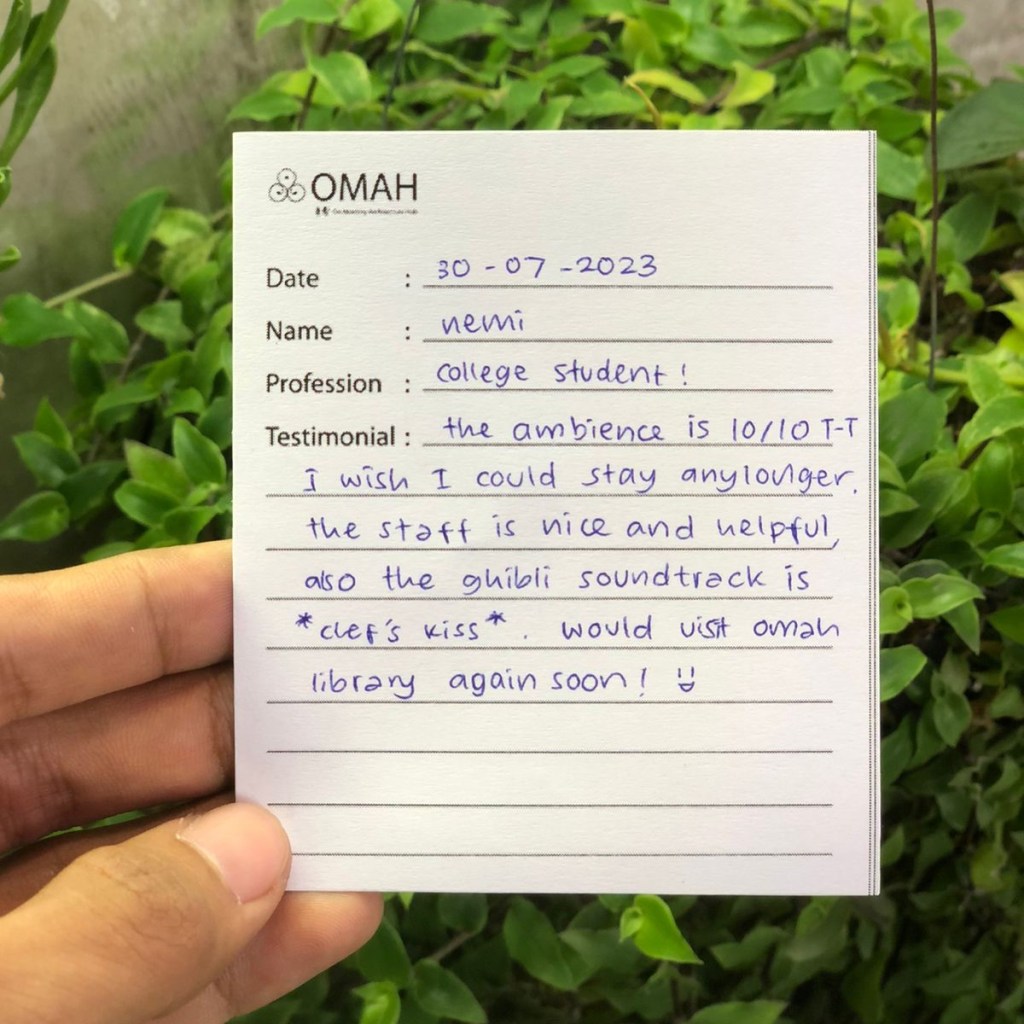 OMAH
Date : 30-07-2023
Name : nemi
Profession : college student!
Testimonial : the ambience is 10/10 T-T
i wish I could stay anylonger.
the staff is nice and helpful,
also the ghibli soundtrack is
*clef's kiss*. would visit omah
library again soon! :D